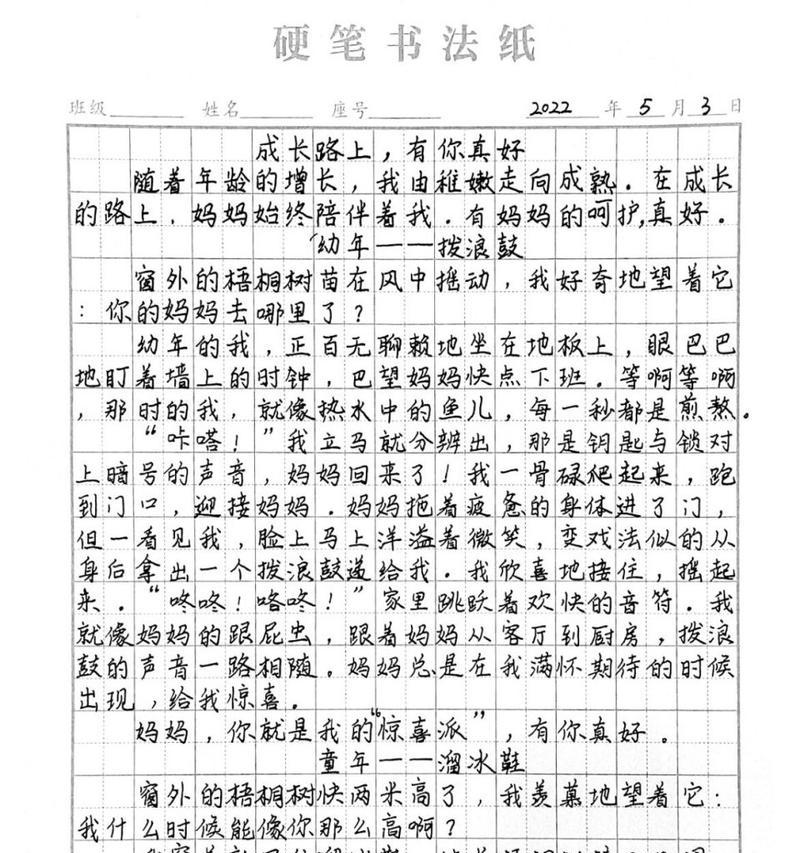 硬笔书法纸
班级 姓名 座号 2022 年 5 月 3 日
成长路上，有你真好
随着年龄的增长，我由稚嫩走向成熟。在成长
的路上，妈妈始终陪伴着我。有妈妈的呵护,真好。
幼年——拨浪鼓
窗外的梧桐树苗在风中摇动，我好奇地望着它
：你的妈妈去哪里了？
幼年的我，正百无聊赖地坐在地板上，眼巴巴
地盯着墙上的时钟，巴望妈妈快点下班。等啊等啊
，那时的我，就像热水中的鱼儿，每一秒都是煎熬。
“咔嗒！”我立马就分辨出，那是钥匙与锁对
上暗号的声音，妈妈回来了！我一骨碌爬起来，跑
到门口，迎接妈妈。妈妈拖着疲惫的身体进了门，
但一看见我，脸上马上洋溢着微笑，变戏法似的从
身后拿出一个拨浪鼓递给我。我欣喜地接住，摇起
来。“咚咚！咯咚！”家里跳跃着欢快的音符。我
就像妈妈的跟屁虫，跟着妈妈从客厅到厨房，拨浪
鼓的声音一路相随。妈妈总是在我满怀期待的时候
出现，给我惊喜。
妈妈，你就是我的“惊喜派”，有你真好。
童年——溜冰鞋
窗外的梧桐树快两米高了，我羡慕地望着它：
我什么时候能像你那么高啊？